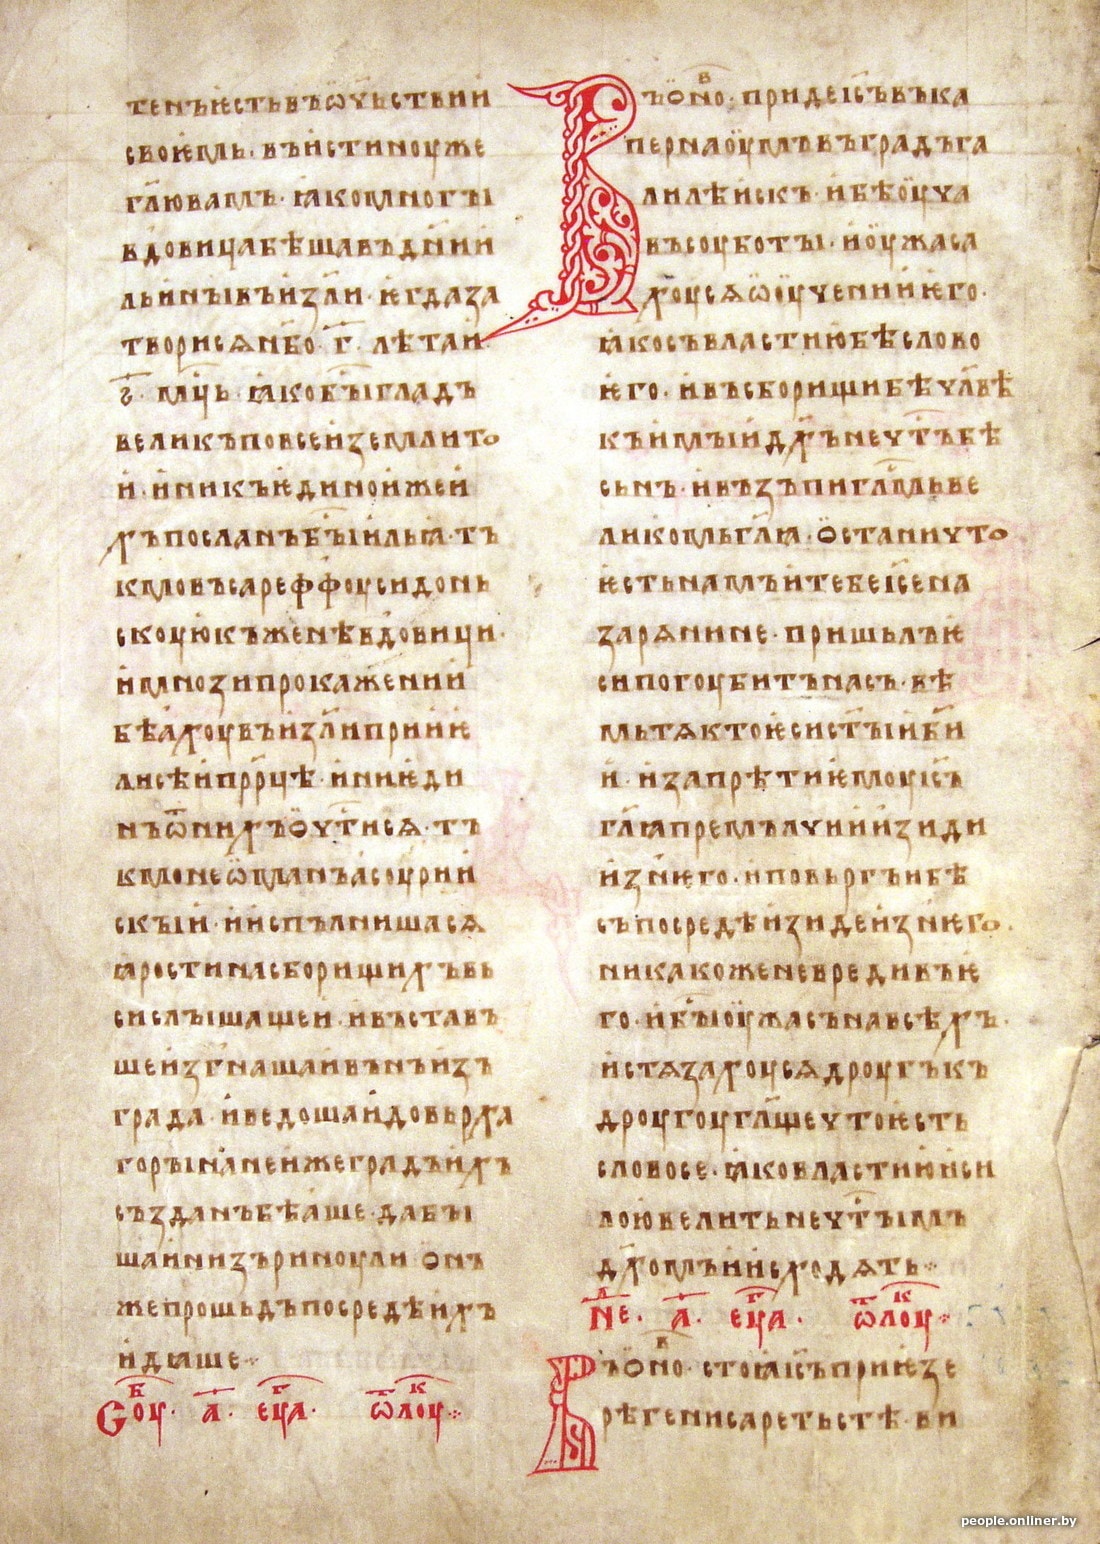 тенъѥстьвъѡчьствии
своѥмь·въистинѹже
гл҃ювамъ·ꙗкомногꙑ
вдовицабѣшавъдн҃ии
льинꙑвъиꙁл҃и·ѥгдаꙁа
творисѧнб҃о·г҃·лѣтаи·
ѕ҃·мц҃ь·ꙗкобꙑгладъ
великъповсеиꙁемлито
и·иникъѥдинои҆жеи
хъпосланъбꙑильꙗ·тъ
кмовъсареффѹсидонь
скѹюкъженѣвдовици·
имноꙁипрокажении
бѣахѹвъиꙁл҃иприѥ
лисѣипрр҃цѣ·ининѥди
нъѿнихъочтисѧ·тъ
кмонеѡманъасѹрии
скꙑи·ииспълнишасѧ
ꙗростинасборищихъвь
сислꙑшащеи·ивъстав
шеиꙁгнашаивънъиꙁ
града·иведошаидовьрха
горꙑнанеижеградъихъ
съꙁданъбѣаше·дабꙑ
шаиниꙁъринѹли·онъ
жепрошьдъпосредѣихъ
идꙗше·:·
Сѹб·а҃·еѵ҃га·ѿлѹк·:·
Въоно҃в·придеіс҃ъвъка
пернаѹмъвъградъга
лилѣискъ·ибѣѹча
въсѹботꙑ·иѹжаса
хѹсѧѡѹченииѥго·
ꙗкосъвластиюбѣслово
ѥго·ивъсборищибѣчл҃вѣ
къимꙑидх҃ънечт҃ъбѣ
сьнъ·ивъꙁъпигл҃мьве
ликомьгл҃ꙗ·останичто
ѥстьнамъитебеіс҃ена
ꙁарѧнине·пришьлъѥ
сипогѹбитънасъ·вѣ
мьтѧктоѥсист҃ꙑиб҃и
и·иꙁапрѣтиѥмѹіс҃ъ
гл҃ꙗпремълчииꙁиди
иꙁнѥго·иповьргъибѣ
съпосредѣиꙁидеиꙁнѥго·
никакоженевредивъѥ
го·ибꙑѹжасънавсѣхъ·
истѧꙁахѹсѧдрѹгъкъ
дрѹгѹгл҃щечтоѥсть
словосе·ꙗковластиюиси
лоювелитьнечт҃ꙑмъ
дх҃омъиисходѧть·:·
Нед·а҃·еѵ҃га·ѿлѹк·:·
Въоно҃в·стоꙗіс҃ъприѥꙁе
рѣгенисаретьстѣ·ви
people.onliner.by